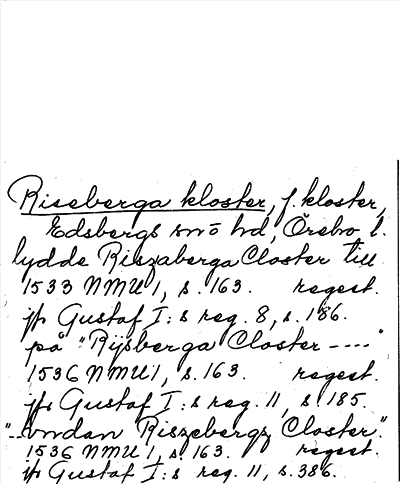 Riseberga kloster, f. kloster,
Edsbergs sn o hd, Örebro l.
lydde Riszaberga Closter till
1533 NMU 1, s. 163. regest.
jfr Gustaf I:s reg. 8, s. 186.
på "Rijsberga Closter ----"
1536 NMU 1, s. 163. regest.
jfr Gustaf I:s reg. 11, s. 185.
"--vndan Riszebergz Closter".
1536 NMU 1, s. 163. regest.
jfr Gustaf I:s reg. 11, s. 386.